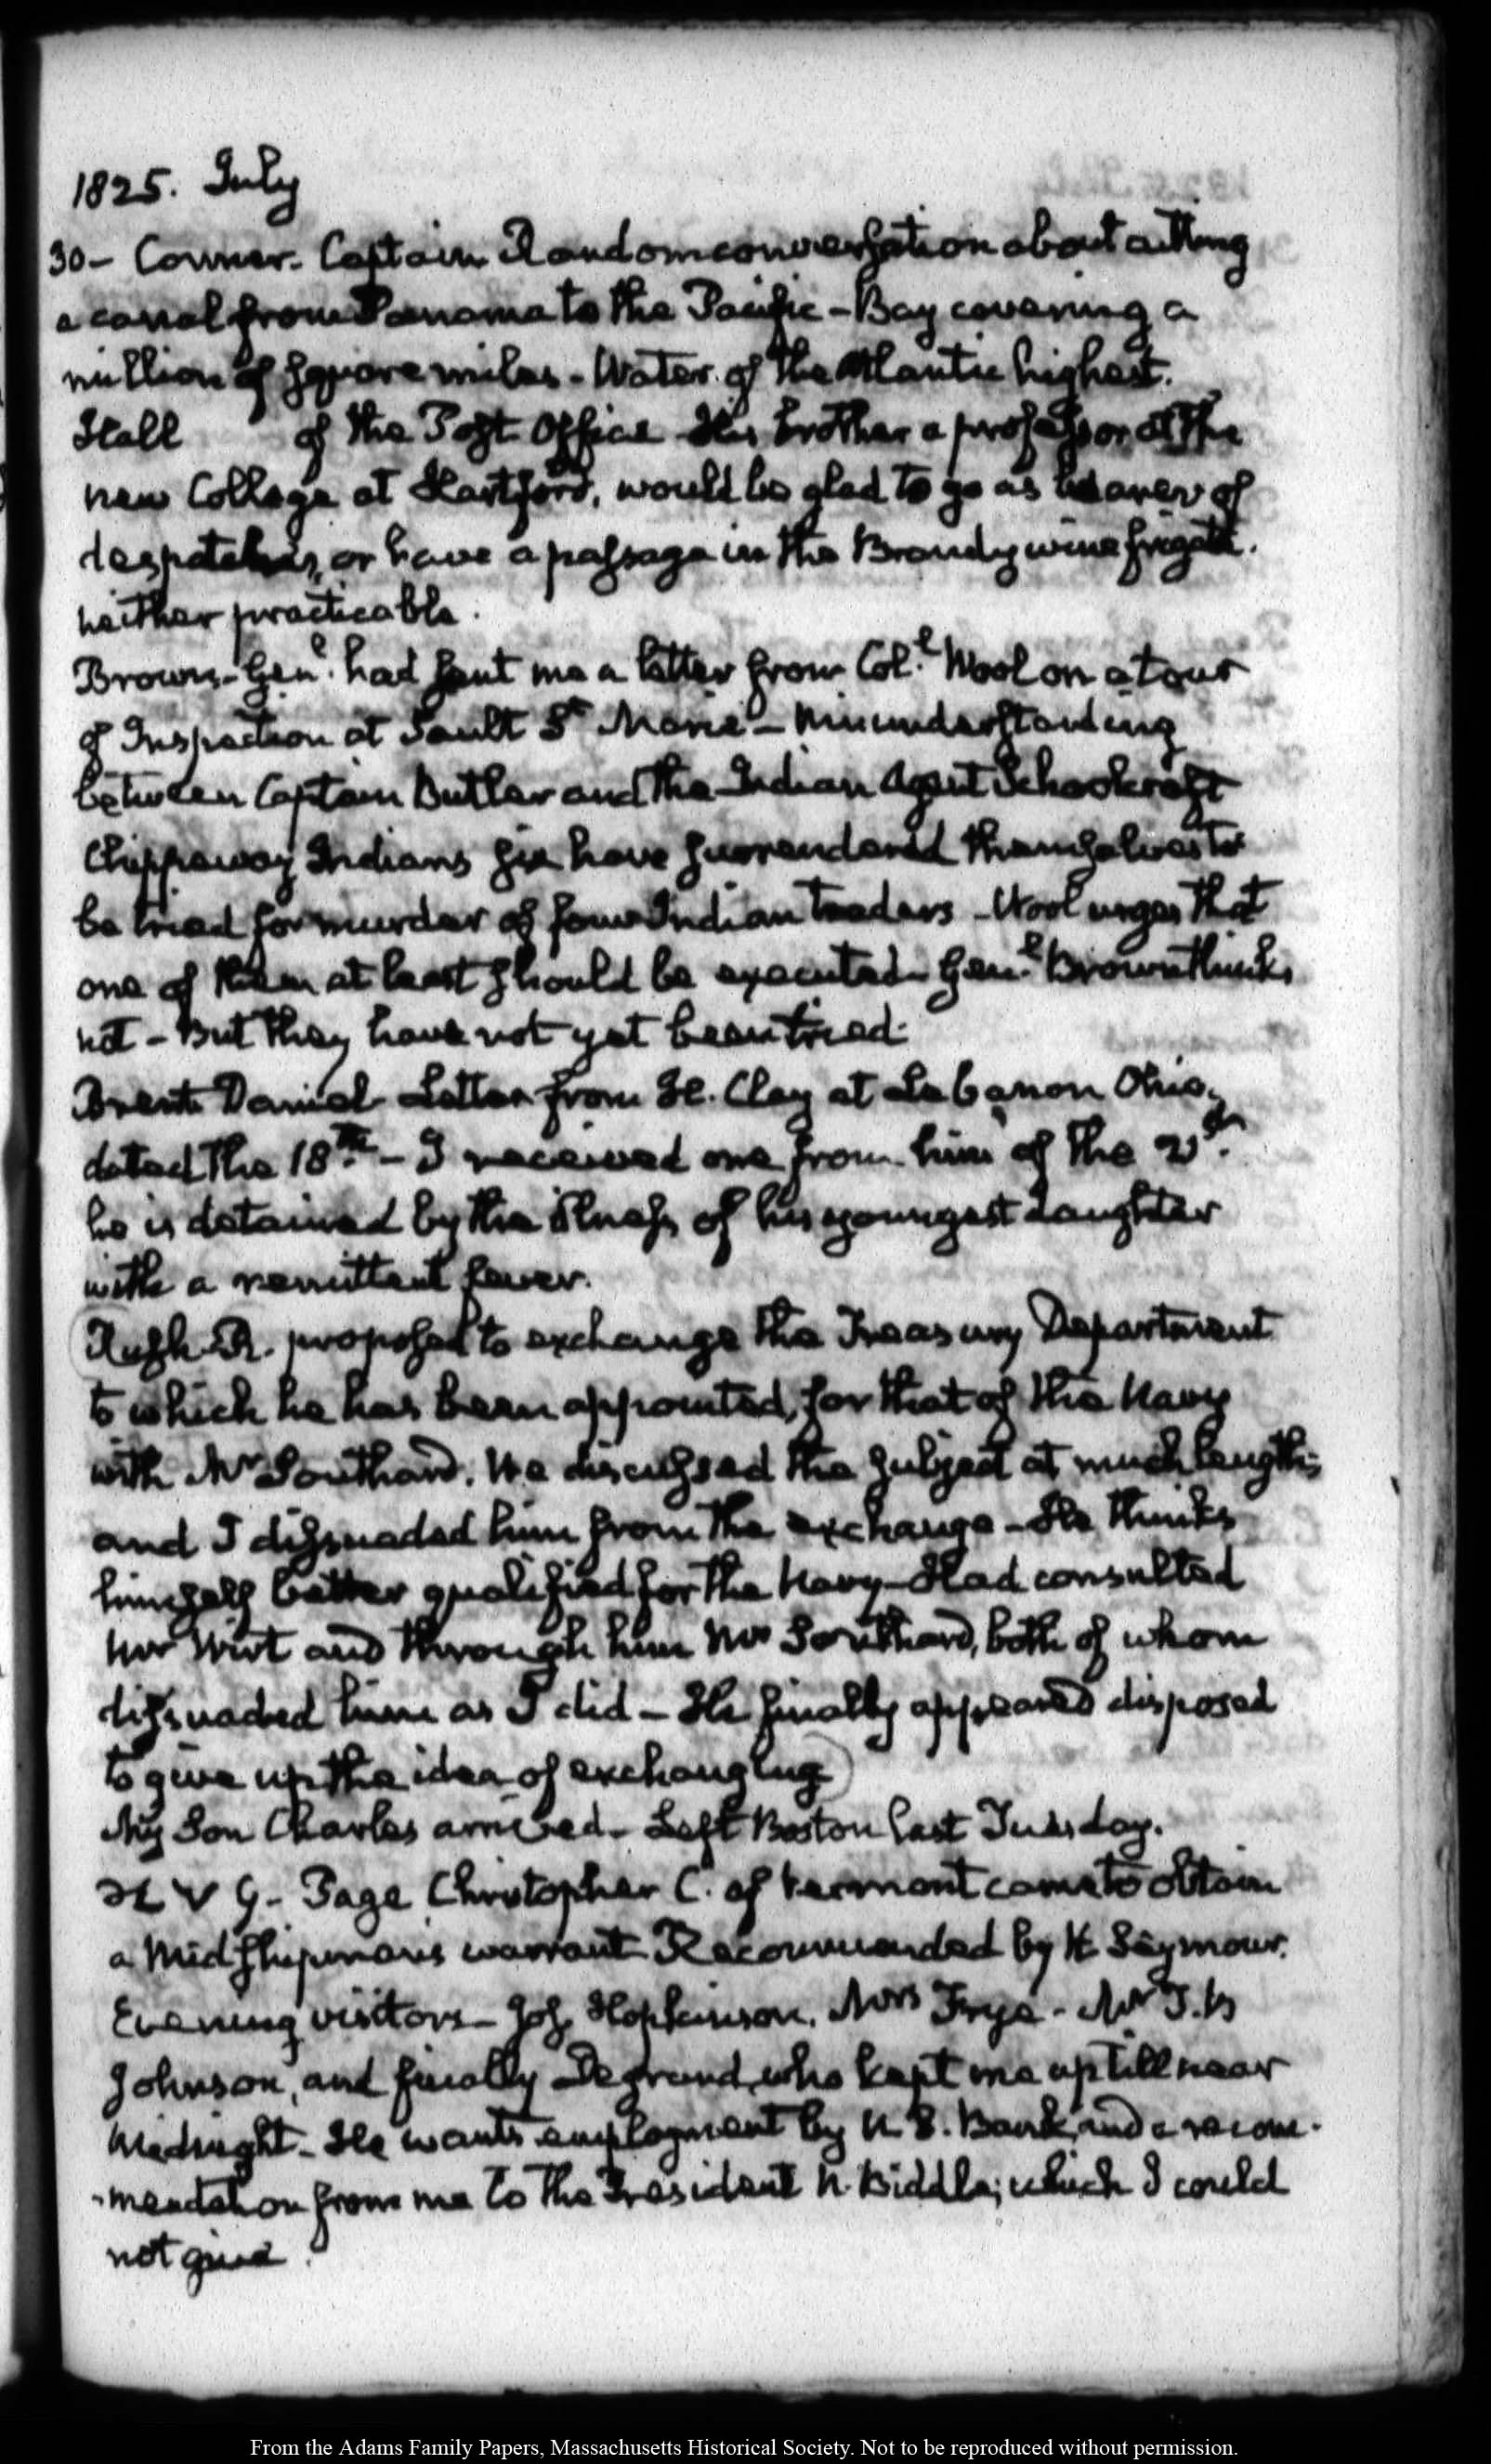 1825. July
30– Conner. Captain Random conversation about cutting
a canal from Panama to the Pacific – Bay covering a
million of square miles – Water of the Atlantic highest.
Hall of the Post Office His brother a professor at the
new College at Hartford, would be glad to go as bearer of
despatches, or have a passage in the Brandywine frigate.
neither practicable.
Brown – Genl. had sent me a letter from Coll. Wool on a tour
of Inspection at Sault St Marie – Misunderstanding
between Captain Butler and the Indian Agent Schoolcraft
Chippeway Indians six have surrendered themselves to
be tried for murder of four Indian traders – Wool urges that
one of them at least should be executed – Genl. Brown thinks
not – But they have not yet been tried.
Brent Daniel Letter from H. Clay at Lebanon Ohio,
dated the 18th. – I received one from him of the 21st.
he is detained by the illness of his youngest daughter
with a remittent fever.
Rush R. proposed to exchange the Treasury Department
to which he has been appointed, for that of the Navy
with Mr Southard. We discussed the subject at much length;
and I dissuaded him from the exchange – He thinks
himself better qualified for the Navy – Had consulted
Mr Wirt and through him Mr Southard, both of whom
dissuaded him as I did – He finally appeared disposed
to give up the idea of exchanging
My Son Charles arrived – Left Boston last Tuesday.
Page Christopher C. of Vermont came to obtain
a Midshipman's warrant Recommended by H Seymour.
Evening visitors – Jos. Hopkinson. Mrs Frye – Mr T. B
Johnson, and finally Degrand, who kept me up till near
Midnight – He wants employment by U.S. Bank, and a recom-
-mendation from me to the President N. Biddle; which I could
not give.
From the Adams Family Papers, Massachusetts Historical Society. Not to be reproduced without permission.